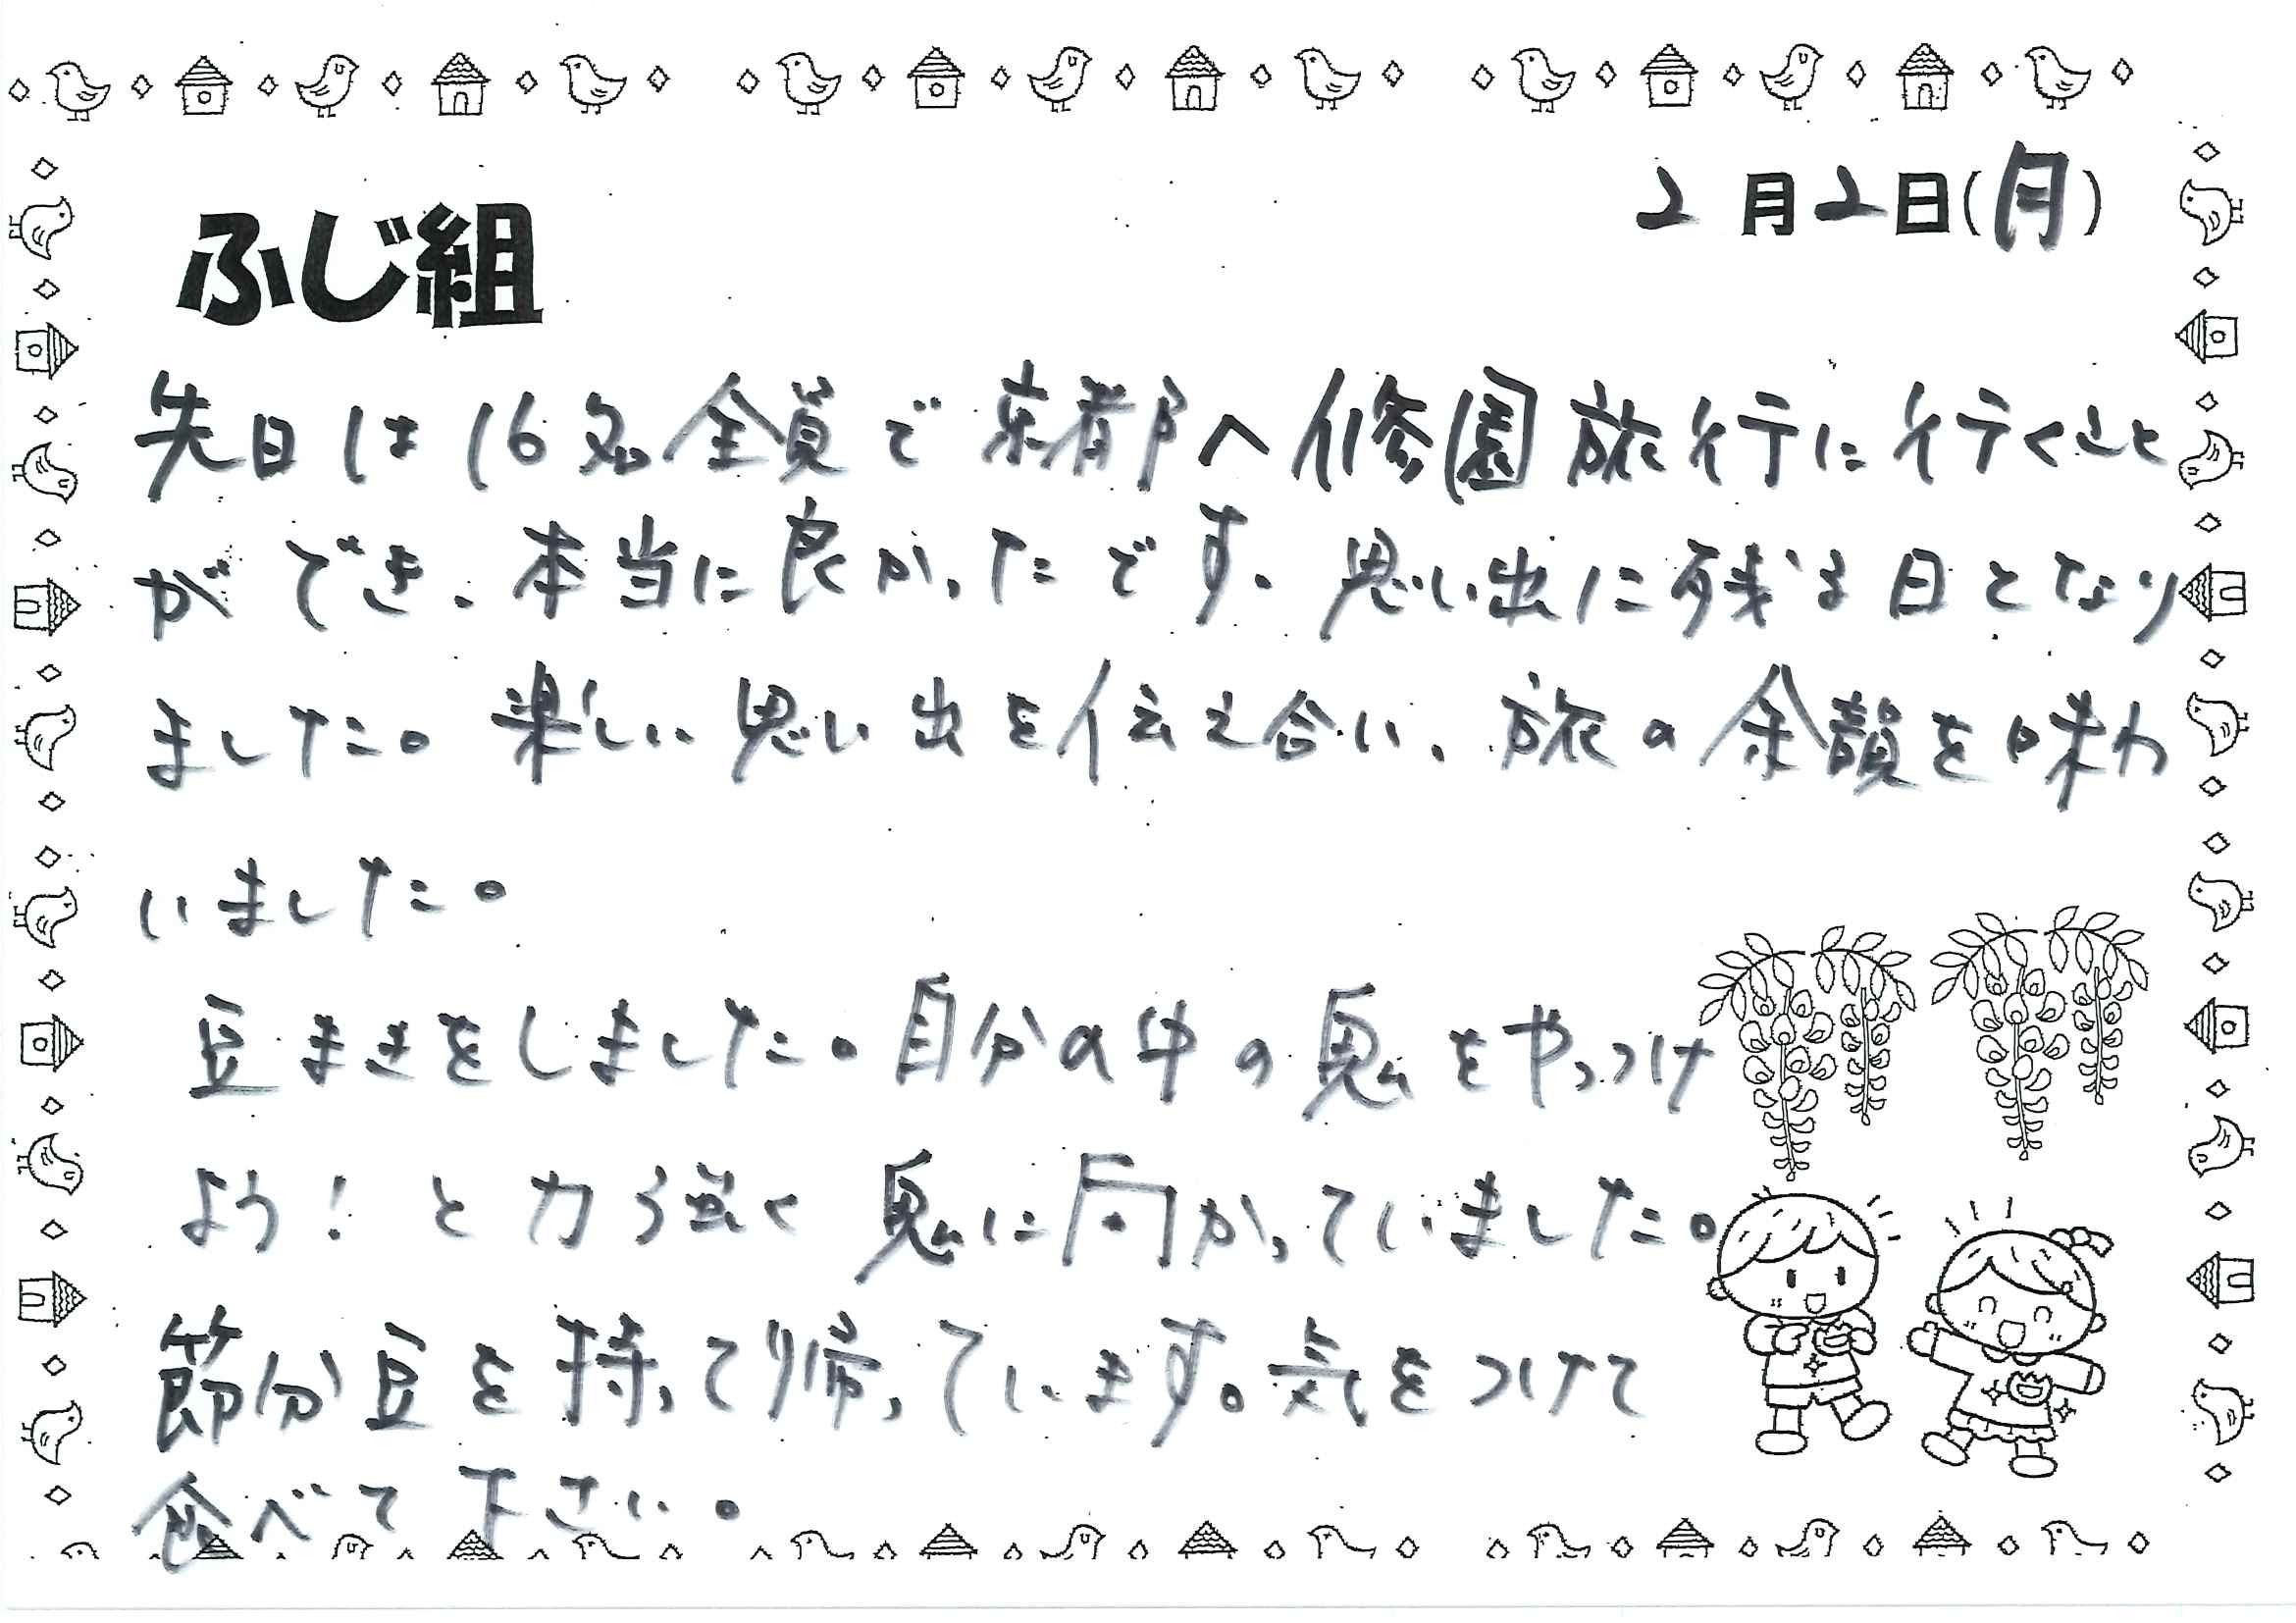 2月2日(月)
ふじ組
先日は16名全員で京都へ修園旅行に行くこと
ができ、本当に良かったです。思い出に残る日となり
ました。楽しい思い出を伝え合い、旅の余韻を味わ
いました。
豆まきをしました。自分の中の鬼をやっつけ
よう!と力う強く鬼に向かっていました。
節分豆を持って帰っています。気をつけて
食べて下さい。